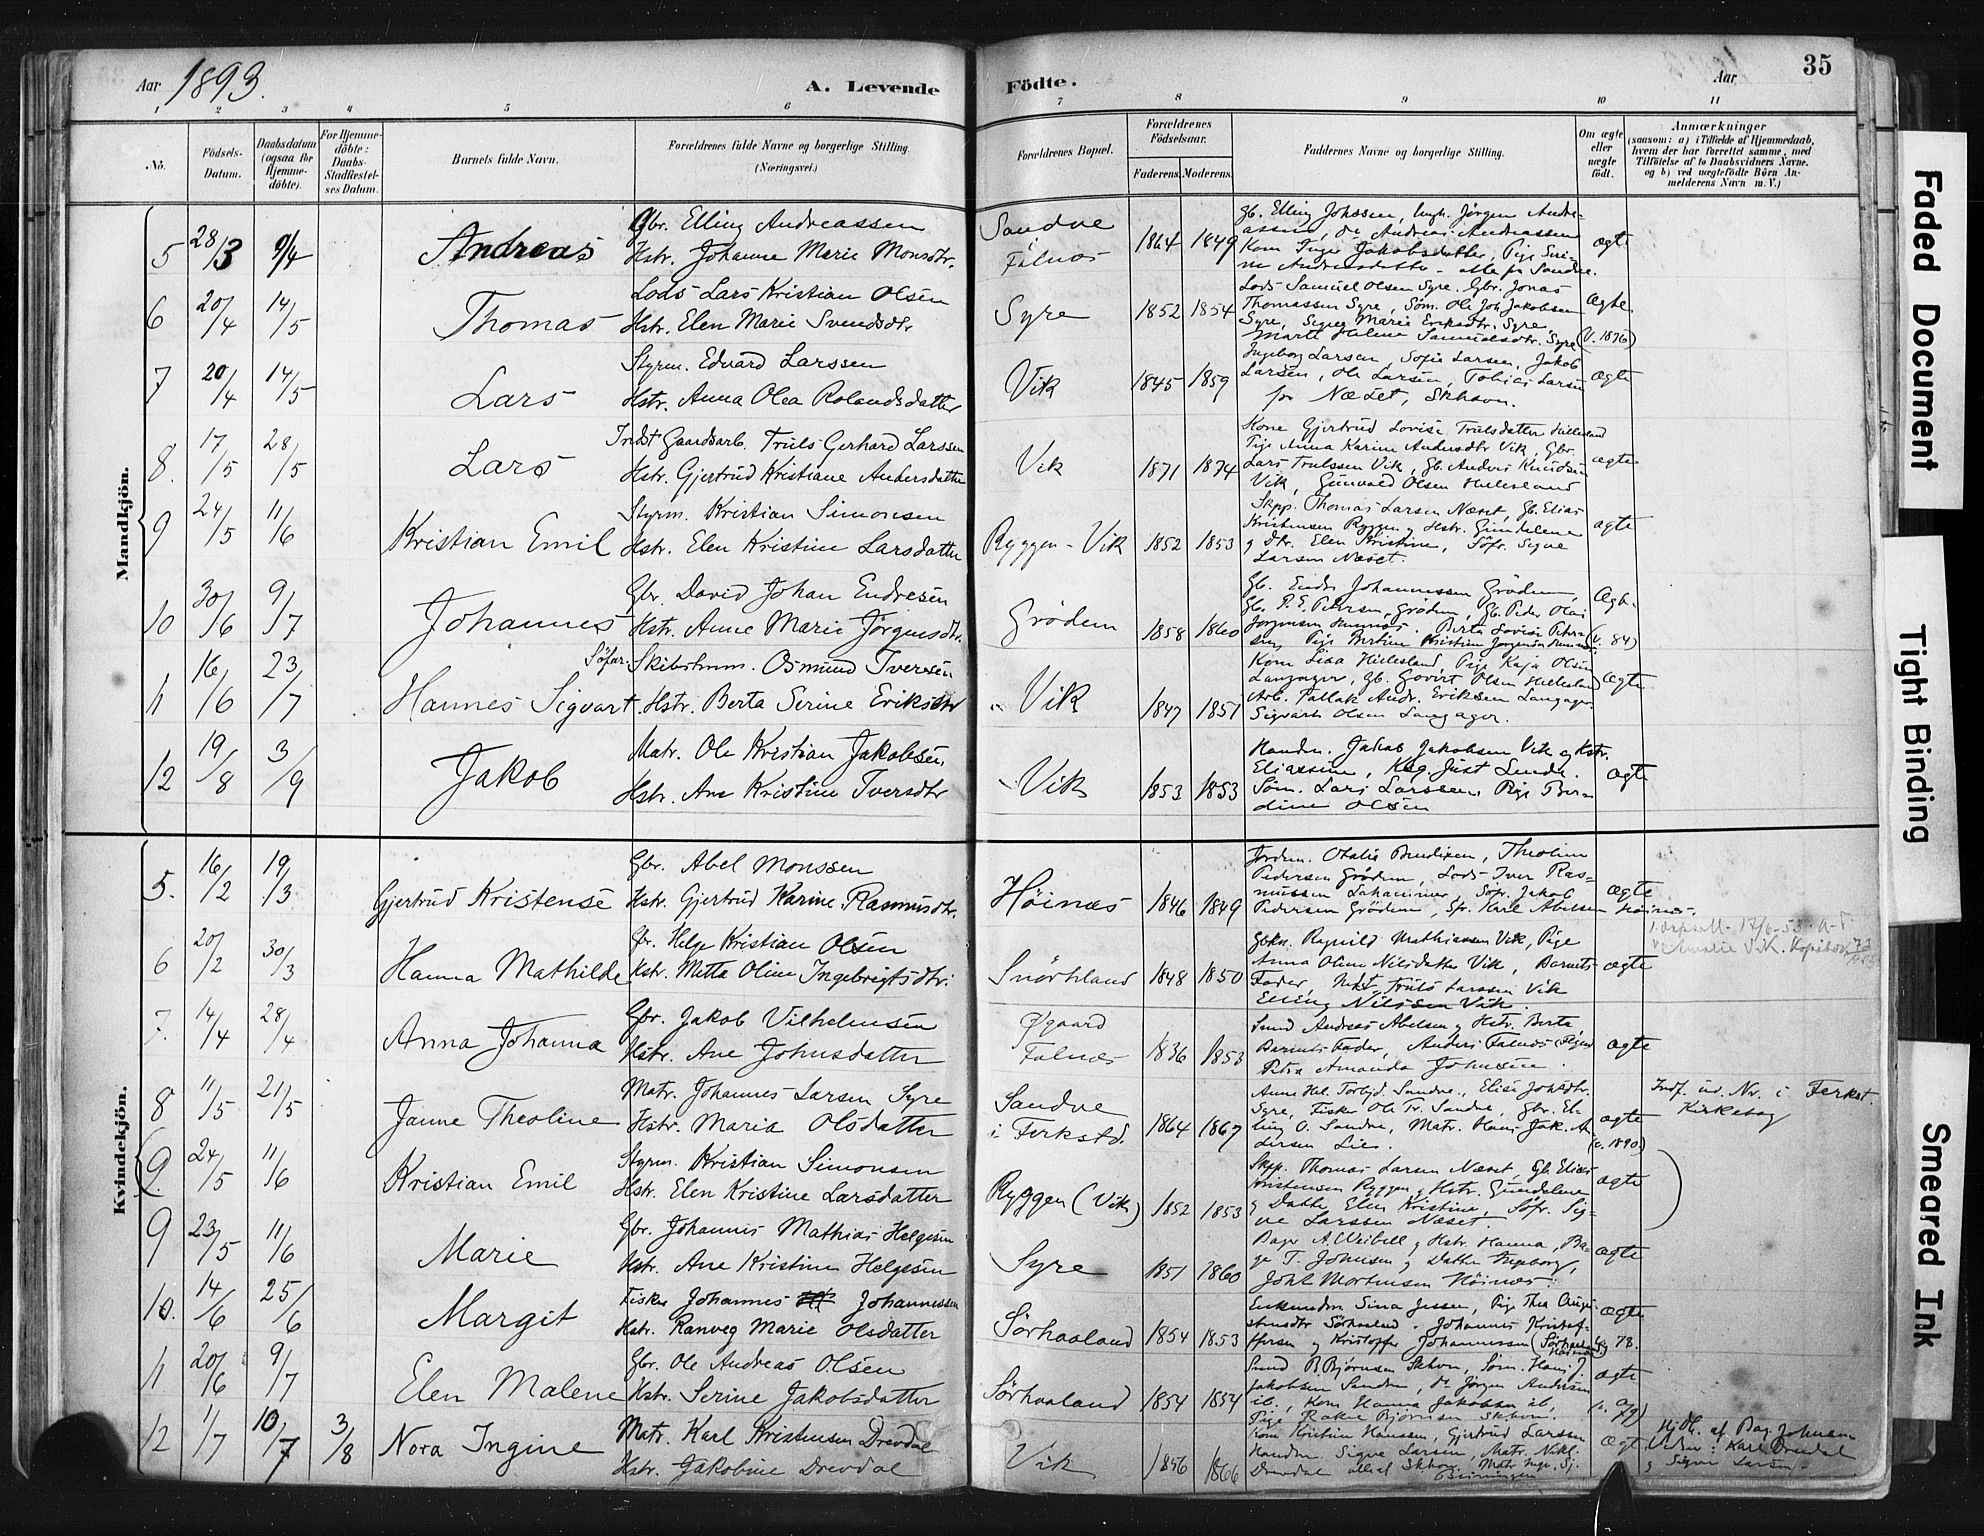 Aar 1893.
A. Levende
Födte.
Aar
35
1 2 3 4 5 6 7 8 9 10 11
No.
Födsels-Datum.
Daabsdatum (ogsaa for Hjemme-döbte).
For Hjemme-döbte: Daabs-Stadfæstel-ses Datum.
Barnets fulde Navn.
Forældrenes fulde Navne og borgerlige Stilling. (Næringsvei.)
Forældrenes Bopæl.
Forældrenes Födselsaar.
Faderens. Moderens.
Faddernes Navne og borgerlige Stilling.
Om ægte eller uægte födt.
Anmærkninger
(saasom: a) i Tilfælde af Hjemmedaab,
hvem der har forrettet samme, med
Tilföielse af to Daabsvidners Navne.
og b) ved uægtefödte Börn An-
melderens Navn m. V.)
Mandkjön.
5 28/3 9/4 Andreas
Gbr. Elling Andreassen
Hstr. Johanne Marie Monsdtr.
Sandve
Falnæs
1864 1849
ægte
6 20/4 14/5 Thomas
Lods Lars Kristian Olsen
Hstr. Elen Marie Svendsdtr
Syre 1852 1854
Lods Samuel Olsen Syre, Gbr. Jonas
Thomassen Syre, Søm. Ole Joh. Jakobsen
Syre, Marie Eriksdtr. Syre
Marte Helene Samuelsdtr. Syre
ægte
(v. 1876)
7 20/4 14/5 Lars
Styrm. Edvard Larssen
Hstr. Anna Olea Rolandsdatter
Vik 1845 1859
Ingeborg Larsen, Sofie Larsen, Jakob
Larsen, Ole Larsen, Tobias Larsen
Næset, Skhavn.
ægte
8. 17/5 28/5 Lars
Indst Gaardsarb. Truls Gerhard Larssen
Hstr. Gjertrud Kristiane Andersdatter
Vik 1871 1874
Kone Gjertrud Lovise Trulsdatter Hillesland
Pige Anna Karine Andersdtr Vik, Gbr.
Lars Trulssen Vik, Gb. Anders Knudsen
Vik, Gunvald Olsen Hillesland
ægte
9 24/5 11/6 Kristian Emil
Styrm. Kristian Simonsen
Hstr. Elen Kristine Larsdatter
Ryggen - Vik 1852 1853
Skpp. Thomas Larsen Næset, Gb. Elias
Kristensen Ryggen og Hstr. Gundelene
og dtr. Elen Kristine, Söfr. Signe
Larsen Næset.
ægte
10 30/6 9/7 Johannes
Gbr. David Johan Endresen
Hstr. Anne Marie Jörgensdtr.
Grödem 1858 1860
Gb. Endre Johannessen Grödem,
Gb. P. E. Petersen Grødem, Gb. Peder Olai
Berta Lovise Peter-
sen, Pige Bertine Kristine Jorgensen
(v. 84)
11 16/6 23/7 Hannes Sigvart
Söfar. Skibstmm. Osmund Iversen
Hstr. Berta Serine Eriksdtr
Vik 1847 1851
Kone Lisa Hillesland, Pige Kaja Olsen
Langager, Gb. Govert Olsen Hillesland
Arb. Tallak Andr. Eriksen Langager
Sigvart Olsen Langager.
ægte
12 19/8 3/9 Jakob
Matr. Ole Kristian Jakobsen
Hstr. Ane Kristine Iversdtr
Vik 1853 1853
Handm. Jakob Jakobsen Vik og Hstr.
Eliassine, Just Lunde.
Søm. Lars Larssen, Pige Ber-
dine Olsen
ægte
Kvindekjön.
5. 16/2 19/3 Gjertrud Kristense
Gbr. Abel Monssen
Hstr. Gjertrud Karine Rasmusdtr.
Höinæs 1846 1849
Jordm. Otalie Bendixen, Theoline
Pedersen Grödem, Lods Iver Ras-
mussen Söfr. Jakob
Pedersen Grödem, Karl Abelsen Höinæs.
ægte
6 20/2 30/3 Hanna Mathilde
Gbr. Helge Kristian Olsen
Hstr. Metta Oline Ingebrigtsdtr.
Snörteland 1848 1850
Gbkn. Ragnild Mathiassen Vik, Pige
Anna Oline Nilsdatter Vik, Barnets
Fader, Truls Larssen Vik
Elling Nilssen Vik
ægte
7. 14/4 28/4 Anna Johanna
Gbr. Jakob Vilhelmsen
Hstr. Ane Johnsdatter
Øgaard
Falnæs
1836 1853
Andreas Abelsen og Hstr. Berta,
Barnets Fader, Anders Falnæs
Petra Amanda Johnsen.
ægte
8 11/5 21/5 Janne Theoline
Matr. Johannes Larsen Syre
Hstr. Maria Olsdatter
Sandve
i Ferkstd.
1864 1867
Anne Hel. Torbj. Sandve, Elise Johsdtr.
Syre, Fisker Ole Tr. Sandve, Gbr. El-
ling O. Sandve, Matr. Hans Jak. An-
dersen Lie.
ægte
(v. 1890)
Indf. ud. Nr. i Ferkst.
Kirkebog
(9. 24/5 11/6 Kristian Emil
Styrm. Kristian Simonsen
Hstr. Elen Kristine Larsdatter
Ryggen (Vik) 1852 1853
Skpp. Thomas Larsen Næset, Gb. Elias
Kristensen Ryggen og Hstr. Gundelene
og Datte Elen Kristine, Söfr. Sig-
ne Larssen Næset.
ægte )
9 23/5 11/6 Marie
Gbr. Johannes Mathias Helgesen
Hstr. Ane Kristine Helgesen
Syre 1851 1860
Bager A. Weibell og Hstr. Hanna, Ba-
ger T. Johnsen og Datter Ingeborg,
Johs Mortensen Höinæs.
ægte
10. 14/6 25/6 Margit
Fisker Johannes Johannessen
Hstr. Ranveg Marie Olsdatter
Sörhaaland 1854 1853
Enkemadm Sina Jessen, Pige Thea Augu-
stinusdtr Sörhaaland. Johannes Kristof-
fersen og Kristoffer Johannessen
ægte
78.
11 20/6 9/7 Elen Malene
Gbr. Ole Andreas Olsen
Hstr. Serine Jakobsdatter
Sörhaaland 1854 1854
B. Bjørnsen Skhvn, Søm. Hans J.
Jakobsen Sandve, Jörgen Andersen
ib., Kone Hanna Jakobsen ib,
Pige Rakel Bjørnsen Skhvn.
ægte
12 1/7 10/7 3/8 Nora Ingine
Matr. Karl Kristensen Drevdal
Hstr. Jakobine Drevdal
Vik 1846 1866
Kone Kristine Hanssen, Gjertrud Larssen
Handm. Signe Larsen, Matr. Nikl.
Drevdal alle af Skhavn,
ægte
Hjdb. af Bag. Johnsen
Vidner: Karl Drevdal
og Signe Larsen
Faded Document
Tight Binding
Smeared Ink